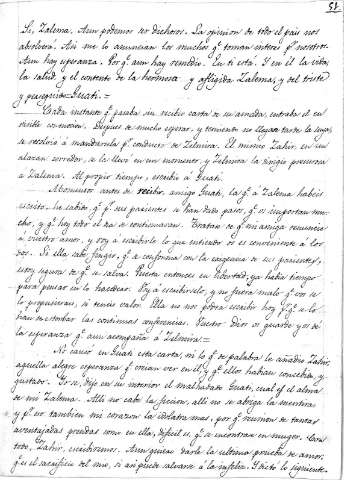 51.
Si, Zalema. Aun podemos ser dichosos. La opinion de todo el pais nos
absolverá. Asi me lo anuncian los muchos q.e toman interes p.r nosotros.
Aun hay esperanza. Por q.e aun hay remedio. En ti está. Y en él la vida,
la salud, y el contento de la hermosa y afligida Zalema, y del triste
y perseguido Guati. =
Cada instante q.e pasaba sin recibir carta de su amada, entraba él en
terrible conmocion. Despues de mucho esperar, y temiendo no llegara tarde la suya,
se resolvió á mandarsela p.r conducto de Zelmira. El mismo Zahir, en un
alazan corredor, se la llevó en un momento, y Zelmira la dirigió presurosa
á Zalema. Al propio tiempo, escribió á Guati.
Momentos antes de recibir, amigo Guati, la q.e á Zalema habeis
escrito, he sabido q.e q.e sus parientes se han dado pasos, q.e os importan mu-
cho, y q.e hoy todo el dia se continuaran. Tratan de q.e mi amiga renuncie
á vuestro amor, y voy á escribirle lo que entiendo os es conveniente á los
dos. Si ella sabe fingir, q.e se conforma con la exigencia de sus parientes,
estoy segura de q.e se salva. Puesta entonces en libertad, ya habrá tiempo
para pensar en lo hacedero. Voy á escribirselo, y no fuera malo q.e vos se
lo propusierais, si teneis valor. Ella no nos podrá escribir hoy p.r q.e se lo
han de estorbar las continuas conferencias. Vuestro Dios os guarde y os dé
la esperanza q.e acompaña á Zelmira =
No causó en Guati esta carta, ni lo q.e de palabra le añadió Zahir,
aquellas alegres esperanzas q.e creian ver en él, y q.e ellos habian concebido, y
gustado. Yo sé, dijo en su interior el malhadado Guati, cual es el alma
de mi Zalema. Allí no cabe la ficcion, allí no se abriga la mentira
y p.r eso tambien mi corazon la idolatra mas, por q.e reunion de tantas
aventajadas prendas como en ella, dificil es, q.e se encontraran en muger. Con
todo, Zahir, escribiremos. Aun quiero darle la ultima prueba de amor,
q.e es el sacrificio del mio, si así puede salvarse á la infeliz. Y dictó lo siguiente.